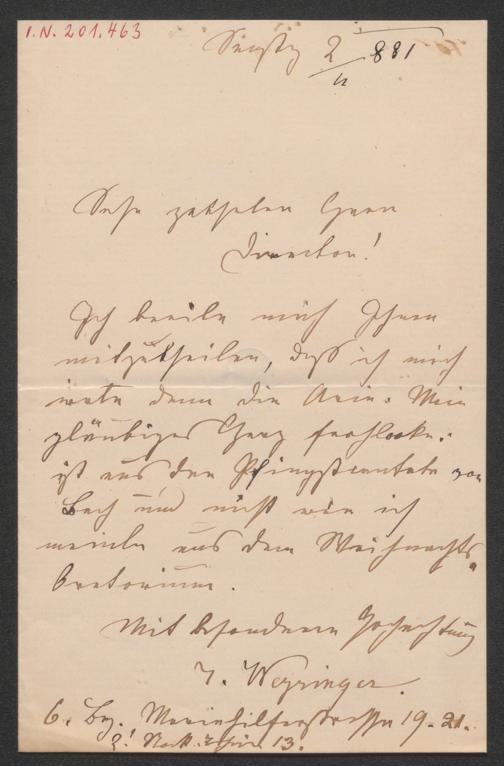 I.N. 201.463
2/11 881
Sehr geehrten Herrn
Director!
Ich beeile mich Ihnen
mitzutheilen, daß ich mich
irrte denn die Arie: Mein
gläubiges Herz frohlocke:
ist aus der Pfingstcantate von
Bach und nicht wie ich
meinte aus dem Weihnachts-
Oratorium.
Mit besonderer Hochachtung
Weyringer.
6. Bz. Mariahilferstrasse 19-21.
2. Stock. Thür 13.